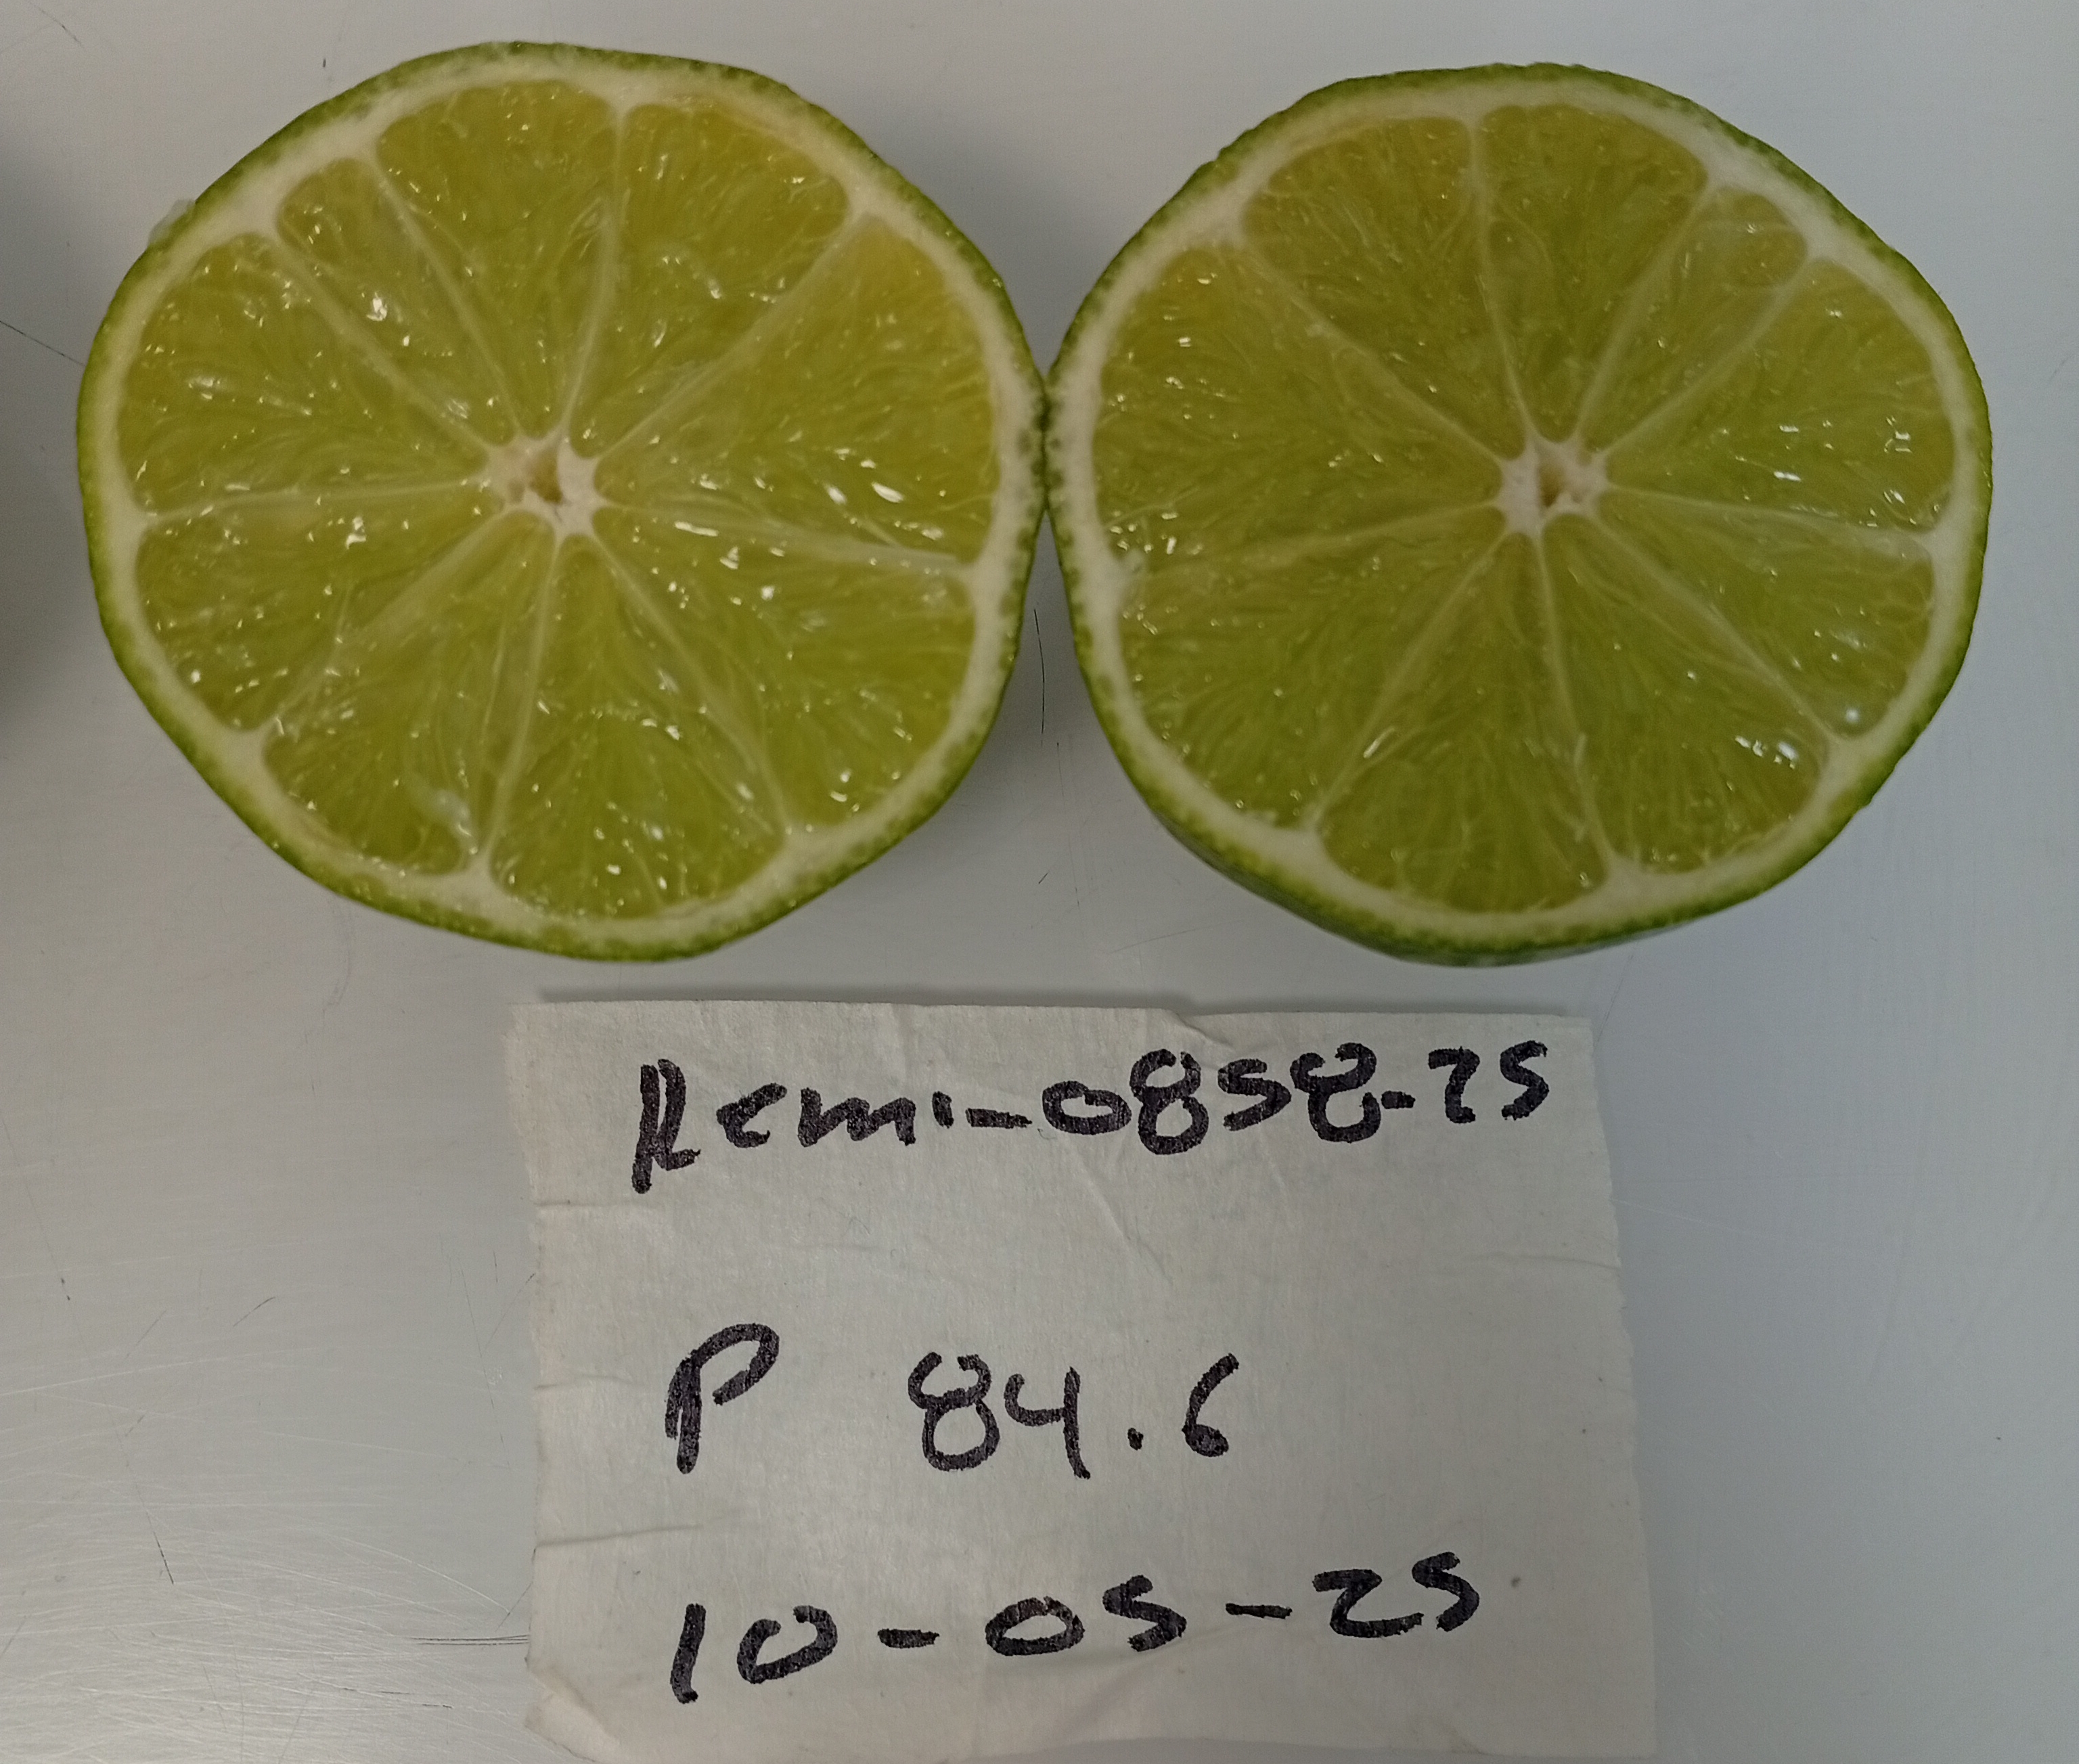 Remi-0858-25
P 84.6
10-05-25